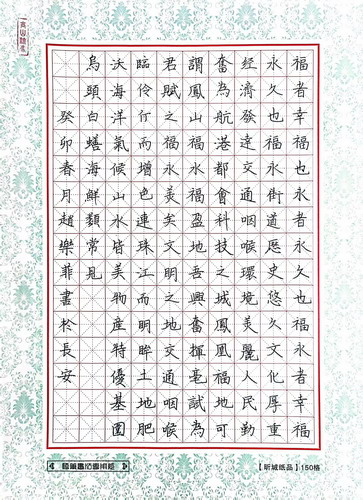 福者幸福也永者永久也福永者幸福
永久也福永街道歷史悠久文化厚重
經濟發達交通咽喉環境美麗人民勤
奮為航港都會科技之城鳳凰福地可
謂鳳山福永福盈地吾興奮揮毫試為
君賦之福永美矣文明之地交通咽喉
臨伶仃而增色連珠江而明眸土地肥
沃海洋氣候山水皆美物產特優基圍
烏頭白蟮海鮮類常見
癸卯春月趙樂菲書於長安
【昕城纸品】150格